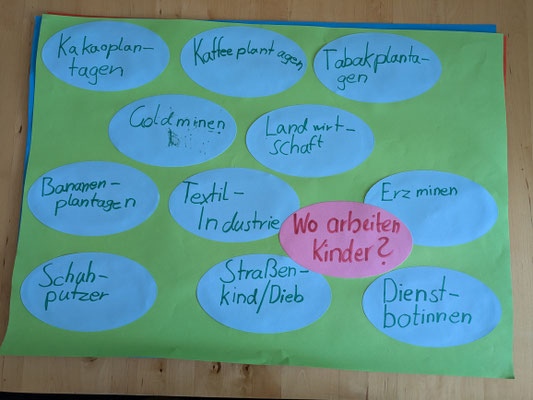 Kakaoplan-
tagen
Kaffeeplantagen
Tabakplanta-
gen
Goldminen
Landwirt-
schaft
Bananen-
plantagen
Textil-
Industrie
Erzminen
Wo arbeiten
Kinder?
Schuh-
putzer
Straßen-
kind/Dieb
Dienst-
botinnen